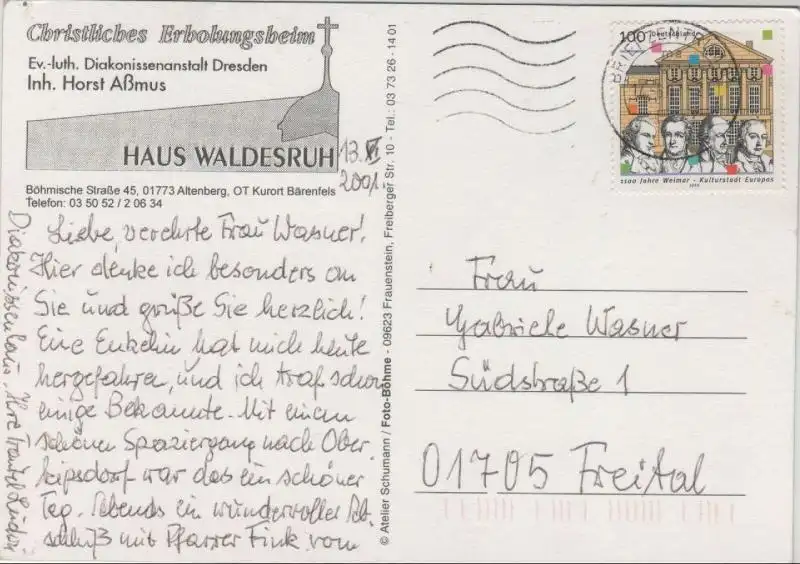 Christliches Erholungsheim
Ev.-luth. Diakonissenanstalt Dresden
Inh. Horst Aßmus
HAUS WALDESRUH
Böhmische Straße 45, 01773 Altenberg, OT Kurort Bärenfels
Telefon: 03 50 52 / 2 06 34
13. VI
2001.
Liebe, verehrte Frau Wasner!
Hier denke ich besonders an
Sie und grüße Sie herzlich!
Eine Enkelin hat mich heute
hergefahren, und ich traf schon
einige Bekannte. Mit einem
schönen Spaziergang nach Ober-
kipsdorf war das ein schöner
Tag. Abends ein wundervoller Ab-
schluß mit Pfarrer Fink vom
Diakonissenhaus. Ihre
© Atelier Schumann / Foto-Böhme - 09623 Frauenstein, Freiberger Str. 10 - Tel.: 03 73 26 - 14 01
100 Deutschland
BRIEFZENTRUM
1100 Jahre Weimar - Kulturstadt Europas
1999
Frau
Gabriele Wasner
Südstraße 1
01705 Freital